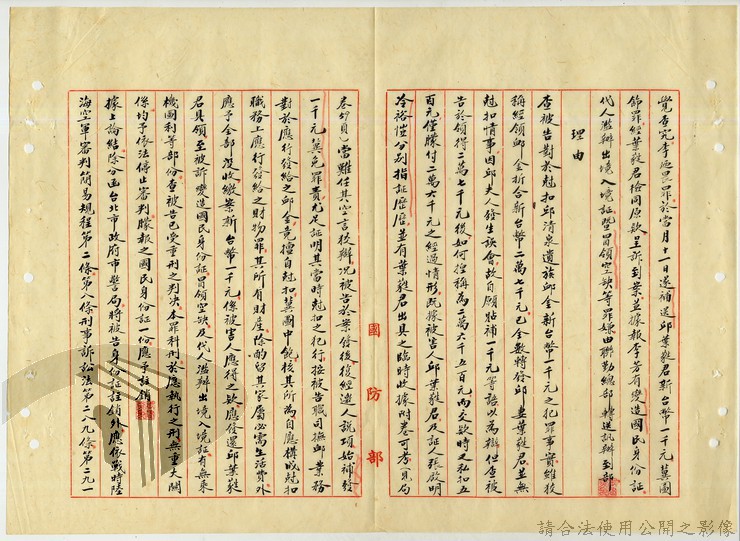 覺查究李芳畏罪於當月十一日遂補送邱葉蕤君新台幣一千元冀圖
飾罪經葉蕤君檢同原款呈訴到案並據報李芳有變造國民身份証
代人濫辦出境入境証暨冒領空缺等罪嫌由聯勤總部轉送訊辦到部
理由
查被告對於尅扣邱清泉遺族邱金新台幣一千元之犯罪事實雖狡
稱經領邱金折合新台幣二萬七千元已全數轉發邱妻葉蕤君並無
尅扣情事因邱夫人發生誤會故自願貼補一千元等語以為辯但查被
告於領得二萬七千元後如何控稱為二萬六千五百元兩交款時之私扣五
百元僅賸付二萬六千元之經過情形既據被害人邱葉蕤君及証人張啟明
冷裕愷分別指証歷歷並有葉蕤君出具之臨時收據附卷可考質局
國防部
卷內見當難任其空言狡辯況被告於案發後後經遣人說項始補發
一千元冀免罪責尤足証明其當時尅扣之犯行按被告職司撫邱業務
對於應行發給之邱金竟擅自尅扣冀圖中飽核其所為自應構成尅扣
職務上應行發給之財物罪其所有財產除酌留其家屬必需生活費外
應予全部沒收繳案新台幣一千元係被害人應得之款應發還邱葉蕤
君具領至被訴變造國民身份証冒領空缺及代人濫辦出境入境証有無乘
機圖利等部份查被告已受重刑之判決本罪科刑於應執行之刑無重大關
係均予依法停止審判賸報之國民身份証一份應予註銷
據上論結除分函台北市政府市警局將被告身份証註銷外應依戰時陸
海空軍審判簡易規程第二條第八條刑事訴訟法第二八九條第二九一
請合法使用公開之影像